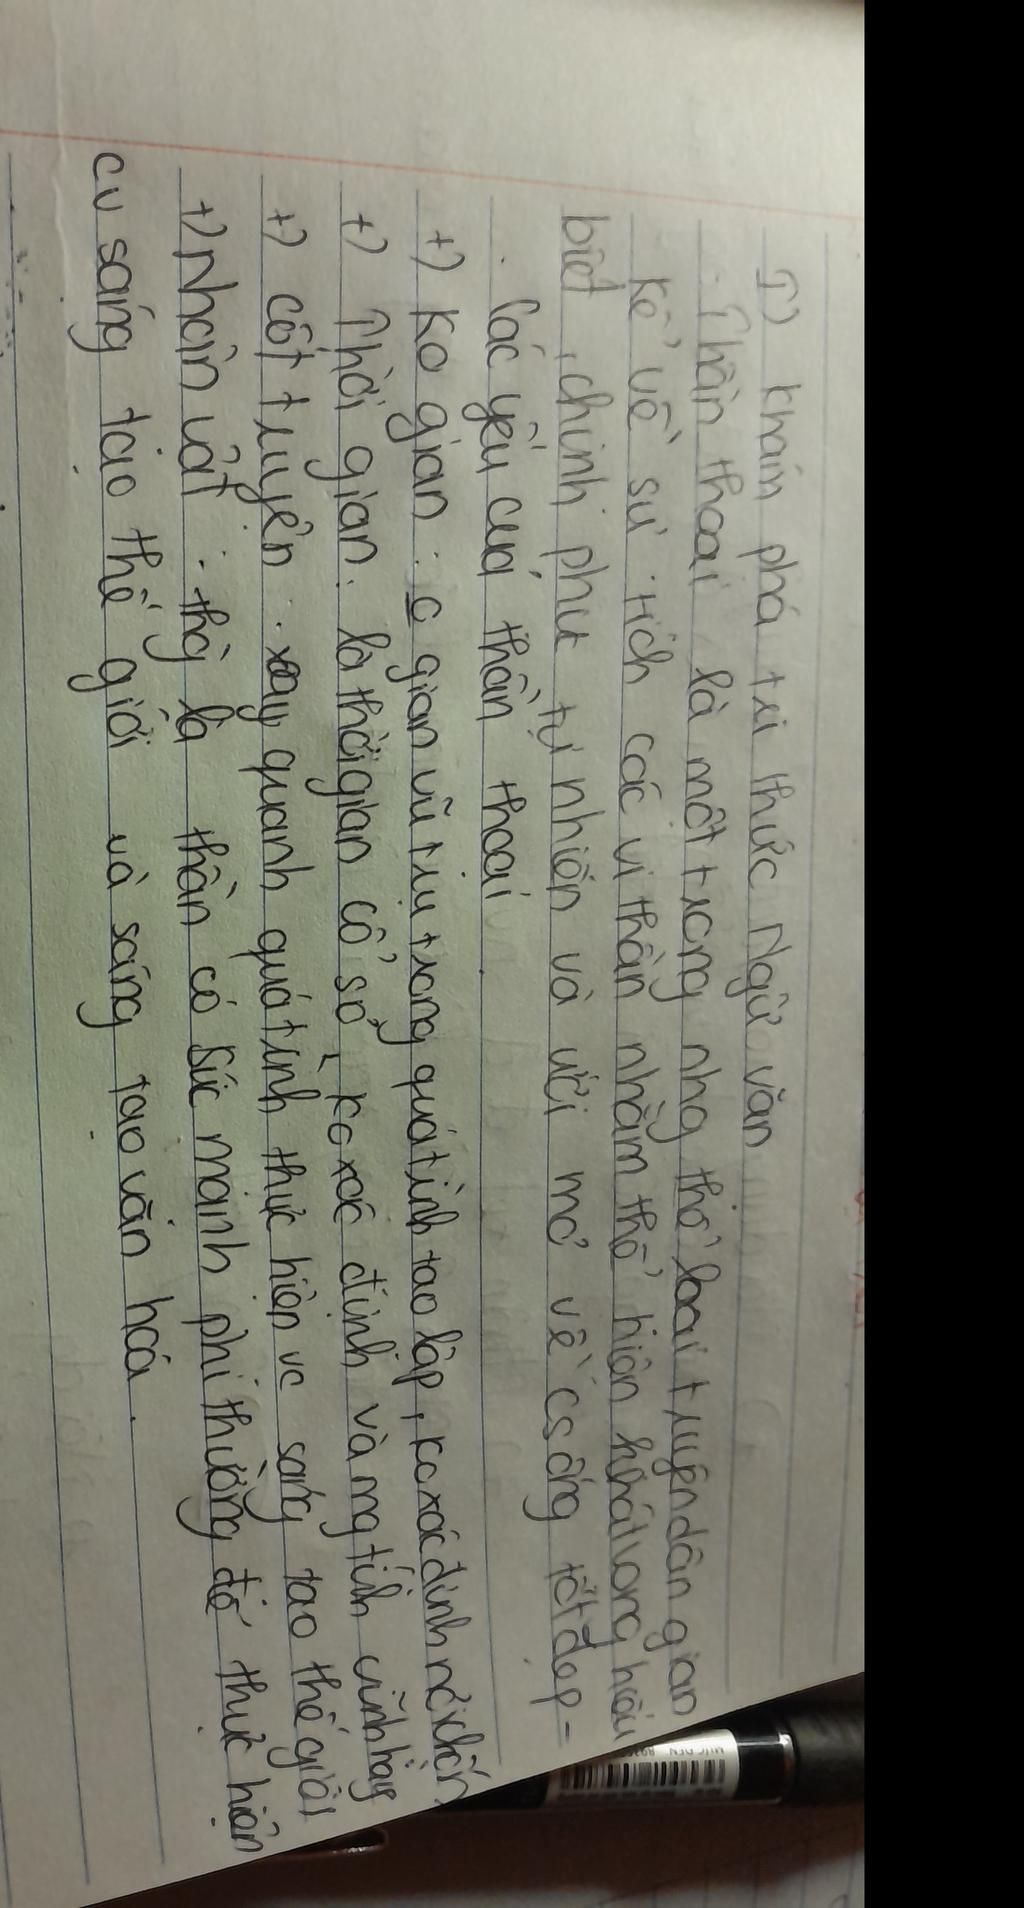 I) Khám phá tri thức Ngữ văn
. Thần thoại là một trong nhg thể loại truyện dân gian
kể về sự tích các vị thần nhằm thể hiện khát vọng hiểu
biết, chinh phục tự nhiên và ước mơ về csống tốt đẹp.
. Các yếu của thần thoại
+) Ko gian: gian vũ trụ trong quá trình tạo lập, ko xác định nơi chốn.
+) Thời gian: là thời gian cổ sơ, ko xác định và mg tính vĩnh hằng
+) cốt truyện: xoay quanh quá trình thực hiện vc sáng tạo thế giới
+) Nhân vật: thg là thần có sức mạnh phi thường để thực hiện
cv sáng tạo thế giới và sáng tạo văn hoá.
MỰC ĐEN